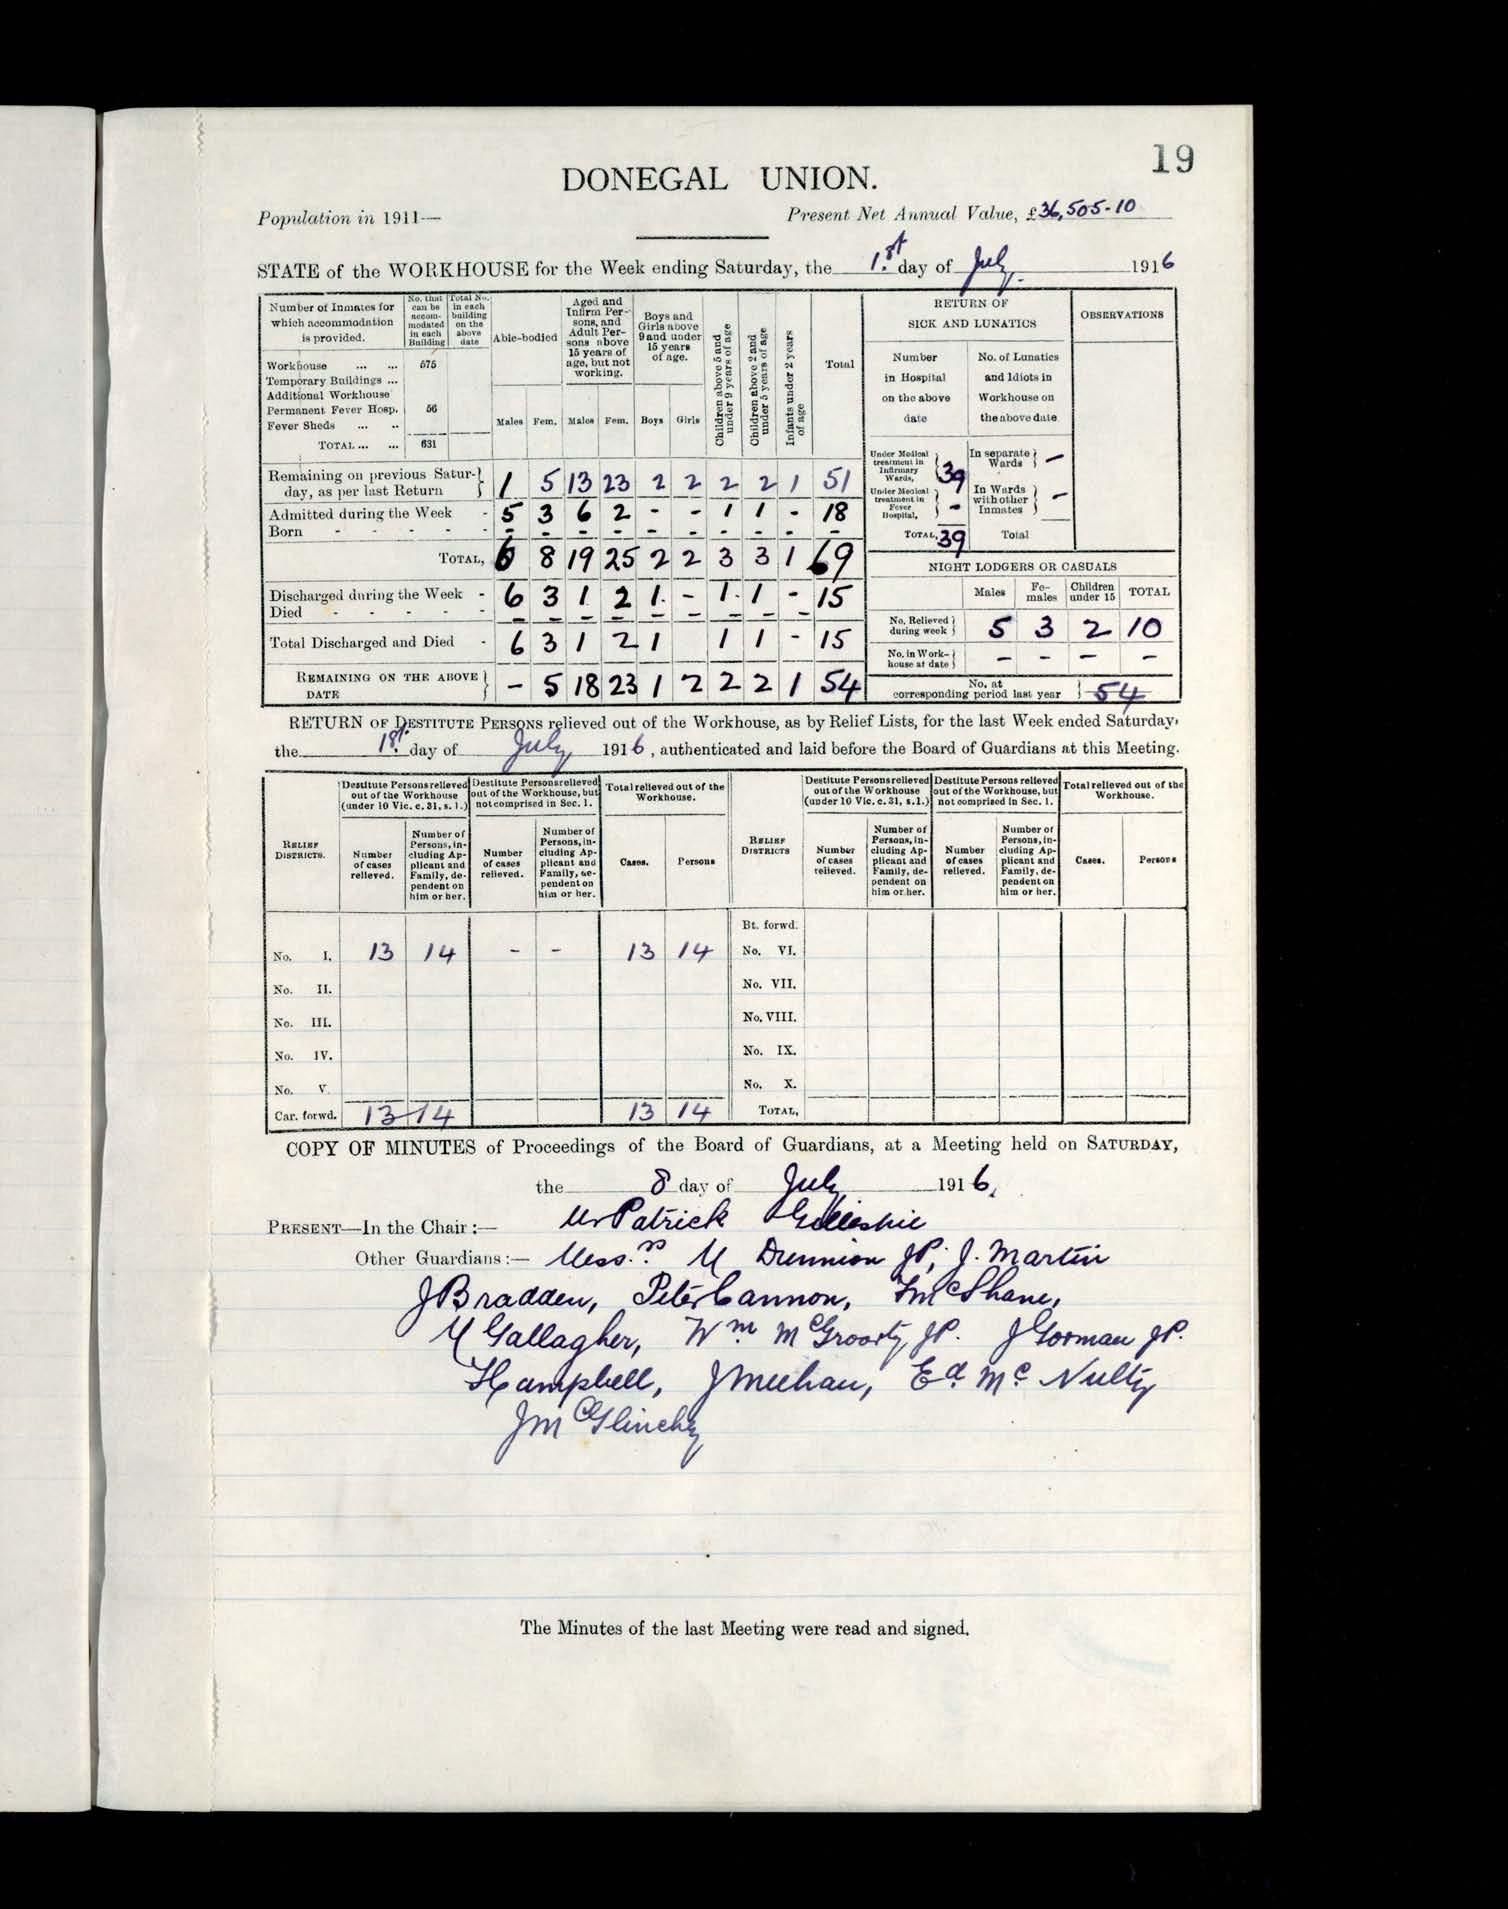 19
DONEGAL UNION.
Population in 1911— Present Net Annual Value, £36,505-10
STATE of the WORKHOUSE for the Week ending Saturday, the 1st. day of July 1916
Number of Inmates for which accommodation is provided. | No. that can be accommodated in each Building | Total No. in each building on the above date | Able-bodied | Aged and Infirm Persons, and Adult Persons above 15 years of age, but not working. | Boys and Girls above 9 and under 15 years of age. | Children above 5 and under 9 years of age | Children above 2 and under 5 years of age | Infants under 2 years of age | Total
Males Fem. Males Fem. Boys Girls
Workhouse ... ... 575
Temporary Buildings ...
Additional Workhouse
Permanent Fever Hosp. 56
Fever Sheds ... ..
TOTAL ... ... 631
Remaining on previous Saturday, as per last Return 1 5 13 23 2 2 2 2 1 51
Admitted during the Week - 5 3 6 2 - - 1 1 - 18
Born - - - - - - - - - - - - - - -
TOTAL, 6 8 19 25 2 2 3 3 1 69
Discharged during the Week - 6 3 1 2 1. - 1. 1 - 15
Died - - - - - - - - - - - - - -
Total Discharged and Died - 6 3 1 2 1 1 1 - 15
REMAINING ON THE ABOVE DATE - 5 18 23 1 2 2 2 1 54
RETURN OF SICK AND LUNATICS
OBSERVATIONS
Number in Hospital on the above date | No. of Lunatics and Idiots in Workhouse on the above date
Under Medical treatment in Infirmary Wards, 39 | In separate Wards -
Under Medical treatment in Fever Hospital, - | In Wards with other Inmates -
TOTAL, 39 | Total
NIGHT LODGERS OR CASUALS
Males | Females | Children under 15 | TOTAL
No. Relieved during week 5 3 2 10
No. in Workhouse at date - - - -
No. at corresponding period last year 54
RETURN OF DESTITUTE PERSONS relieved out of the Workhouse, as by Relief Lists, for the last Week ended Saturday,
the 1st. day of July 1916, authenticated and laid before the Board of Guardians at this Meeting.
RELIEF DISTRICTS. | Destitute Persons relieved out of the Workhouse (under 10 Vic. c. 31, s. 1.) | Destitute Persons relieved out of the Workhouse, but not comprised in Sec. 1. | Total relieved out of the Workhouse. | RELIEF DISTRICTS | Destitute Persons relieved out of the Workhouse (under 10 Vic. c. 31, s.1.) | Destitute Persons relieved out of the Workhouse, but not comprised in Sec. 1. | Total relieved out of the Workhouse.
Number of cases relieved. | Number of Persons, including Applicant and Family, dependent on him or her. | Number of cases relieved. | Number of Persons, including Applicant and Family, dependent on him or her. | Cases. | Persons | Number of cases relieved. | Number of Persons, including Applicant and Family, dependent on him or her. | Number of cases relieved. | Number of Persons, including Applicant and Family, dependent on him or her. | Cases. | Persons
Bt. forwd.
No. I. 13 14 - - 13 14 No. VI.
No. II. No. VII.
No. III. No. VIII.
No. IV. No. IX.
No. V. No. X.
Car. forwd. 13 14 13 14 TOTAL,
COPY OF MINUTES of Proceedings of the Board of Guardians, at a Meeting held on SATURDAY,
the 8 day of July 1916.
PRESENT—In the Chair:— Mr Patrick Gillespie
Other Guardians:— Mess.rs M Drennion JP, J. Martin
J Bradden, Peter Cannon, McShane,
M Gallagher, Wm McGroarty JP. J Gorman JP.
H Campbell, J Meehan, Ed. Mc Nulty
J McGlinchey
The Minutes of the last Meeting were read and signed.